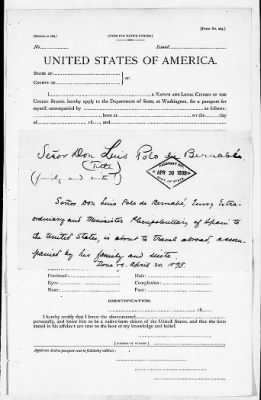 [FORM FOR NATIVE CITIZEN.]
No.
Issued
UNITED STATES OF AMERICA.
STATE OF
COUNTY OF
I, a NATIVE AND LOYAL CITIZEN OF THE
UNITED STATES, hereby apply to the Department of State, at Washington, for a passport for
myself, accompanied by as follows:
born at on the day
of 18 , and
Señor Don Luis Polo de Bernabé
(Title)
(family and suite)
PASSPORT
APR 20 1898
DEPT. OF STATE
Señor Don Luis Polo de Bernabé, Envoy Extra-
ordinary and Minister Plenipotentiary of Spain to
the United States, is about to travel abroad, accom-
panied by his family and suite.
April 20, 1898.
Forehead
Hair
Eyes
Complexion
Nose
Face
IDENTIFICATION.
18
I hereby certify that I know the above-named
personally, and know him to be a native-born citizen of the United States, and that the facts
stated in his affidavit are true to the best of my knowledge and belief.
[ADDRESS OF WITNESS.]
Applicant desires passport sent to following address: